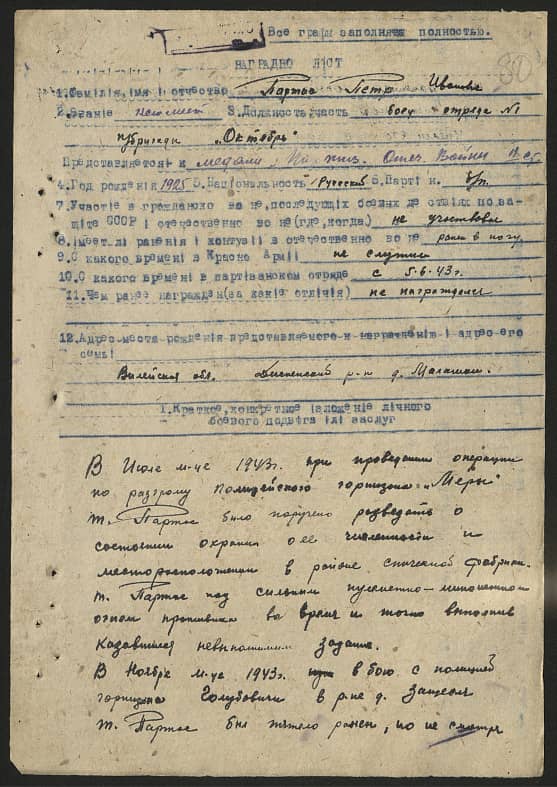 Все граф заполнять полностью.
НАГРАДНО ЛІСТ
1.Фамілія,імя і отчество Партос Петр Иванови
2.Званіе 3.Должность,часть боец отряда №1
п/бригады „Октябрь"
Представляется к медали „Парт. Отеч. Войны II ст
4.Год рожденія 1925 5.Національность Русский 6.Парті н. б/п.
7.Участіе в гражданско во не,последующіх боевых де ствіях по за-
щіте СССР і отечественно во не(где,когда) не участвовал
8.Імеет лі раненія і контузіі в отечественно во не ранен в ногу
9.С какого времені в Красно Арміі не служил
10.С какого времені в партізанском отряде с 5.6.43г.
11.Чем ранее награжден(за какіе отлічія) не награждался
12.Адрес места рожденія представляемого к награжденію і адрес его
семьі
Вилейская обл. Дисненский р-н д.
1.Краткое,конкретное ізложеніе лічного
боевого подвіга ілі заслуг
В Июле м-це 1943г. при проведении операции
по разгрому Полицейского гарнизона „Меры"
т. Партос было поручено разведать о
состоянии охраны о ее численности и
месторасположении в районе спичечной фабрики.
т. Партос под сильным пулеметно-минометным
огнем противника во время и точно выполнил
казавшиеся невыполнимым задание.
В Ноябре м-це 1943г. в бою с полицией
гарнизона Голубовичи в р-не д.
т. Партос был тяжело ранен, но не смотря